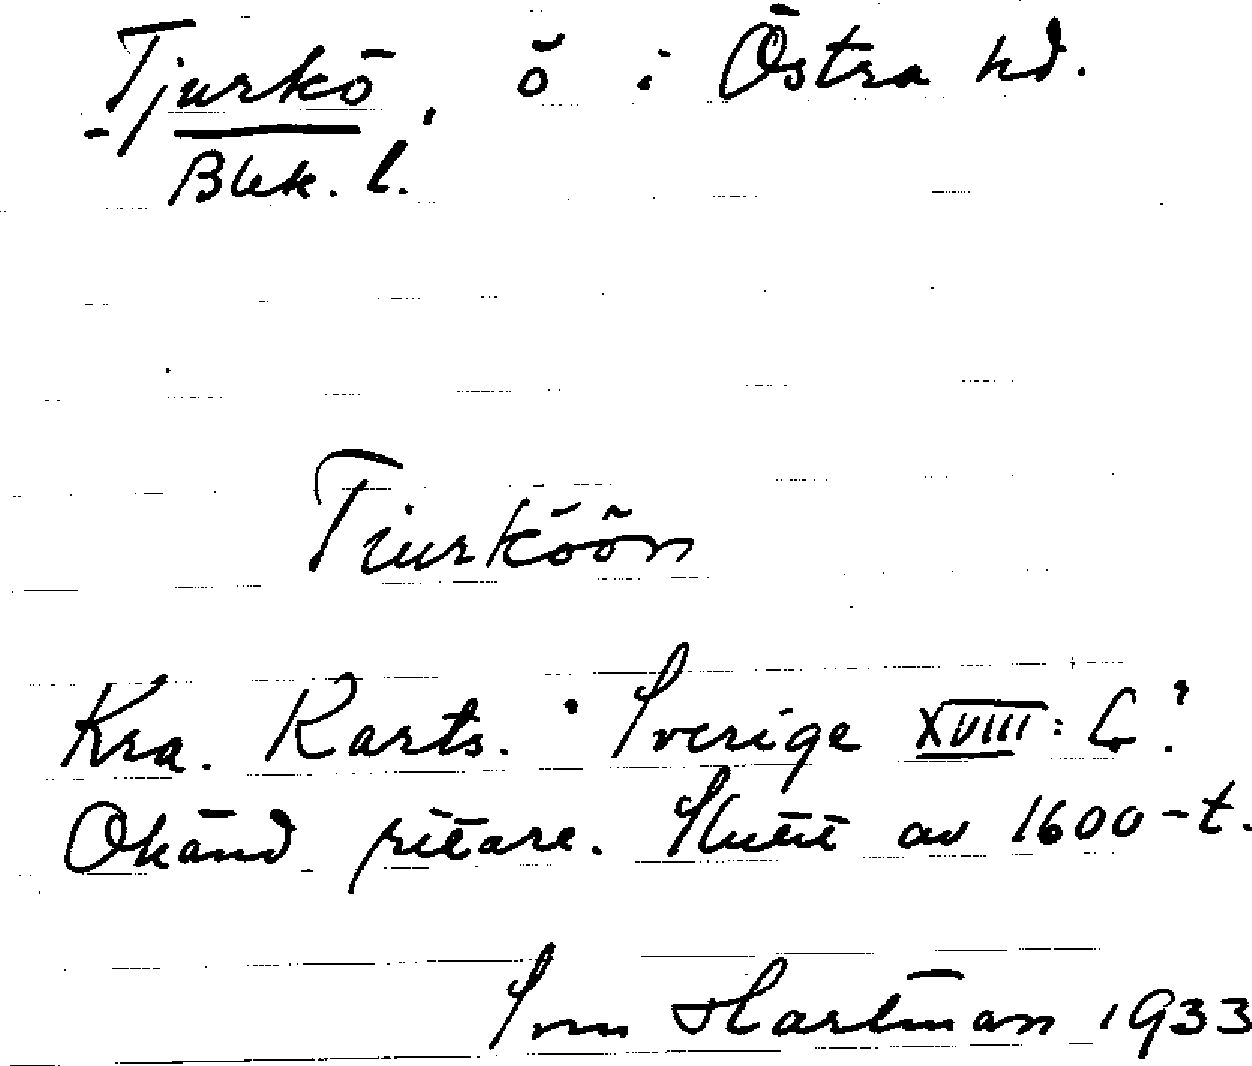 Tjurkö, ö i Östra hd.
Blek. l.
Tiurköön
Kra. Karts. Sverige XVIII: G:
Okänd ritare. Slutet av 1600-t.
Sven Hartman 1933